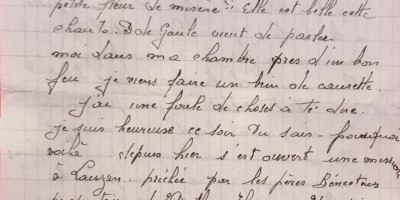 petite fleur de misère". Elle est belle cette
chante. D de Gaule vient de parler
moi dans ma chambre près d'un bon
feu je viens faire un brin de causette.
j'ai une foule de choses à te dire.
je suis heureuse ce soir Tu sais pourquoi
voilà depuis hier s'est ouvert une mission
à Lauzun prêchée par les pères Bénédictins